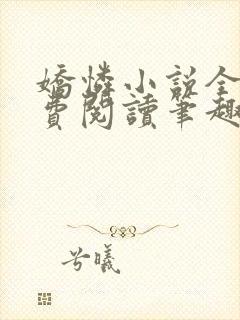 嬌憐小說全
費閱讀筆趣
兮曦